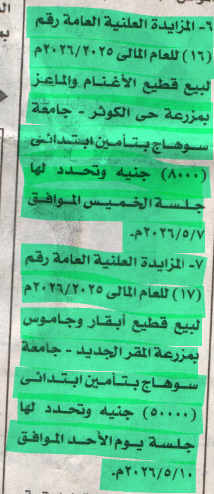 ٦- المزايدة العلنية العامة رقم
(١٦) للعام المالى ٢٠٢٦/٢٠٢٥م
لبيع قطيع الأغنام والماعز
بمزرعة حى الكوثر - جامعة
سوهاج بتأمين ابتدائى
(٨٠٠٠) جنيه وتحدد لها
جلسة الخميس الموافق
٢٠٢٦/٥/٧م.
٧- المزايدة العلنية العامة رقم
(١٧) للعام المالى ٢٠٢٦/٢٠٢٥م
لبيع قطيع أبقار وجاموس
بمزرعة المقر الجديد - جامعة
سوهاج بتأمين ابتدائى
(٥٠٠٠٠) جنيه وتحدد لها
جلسة يوم الأحد الموافق
٢٠٢٦/٥/١٠م.